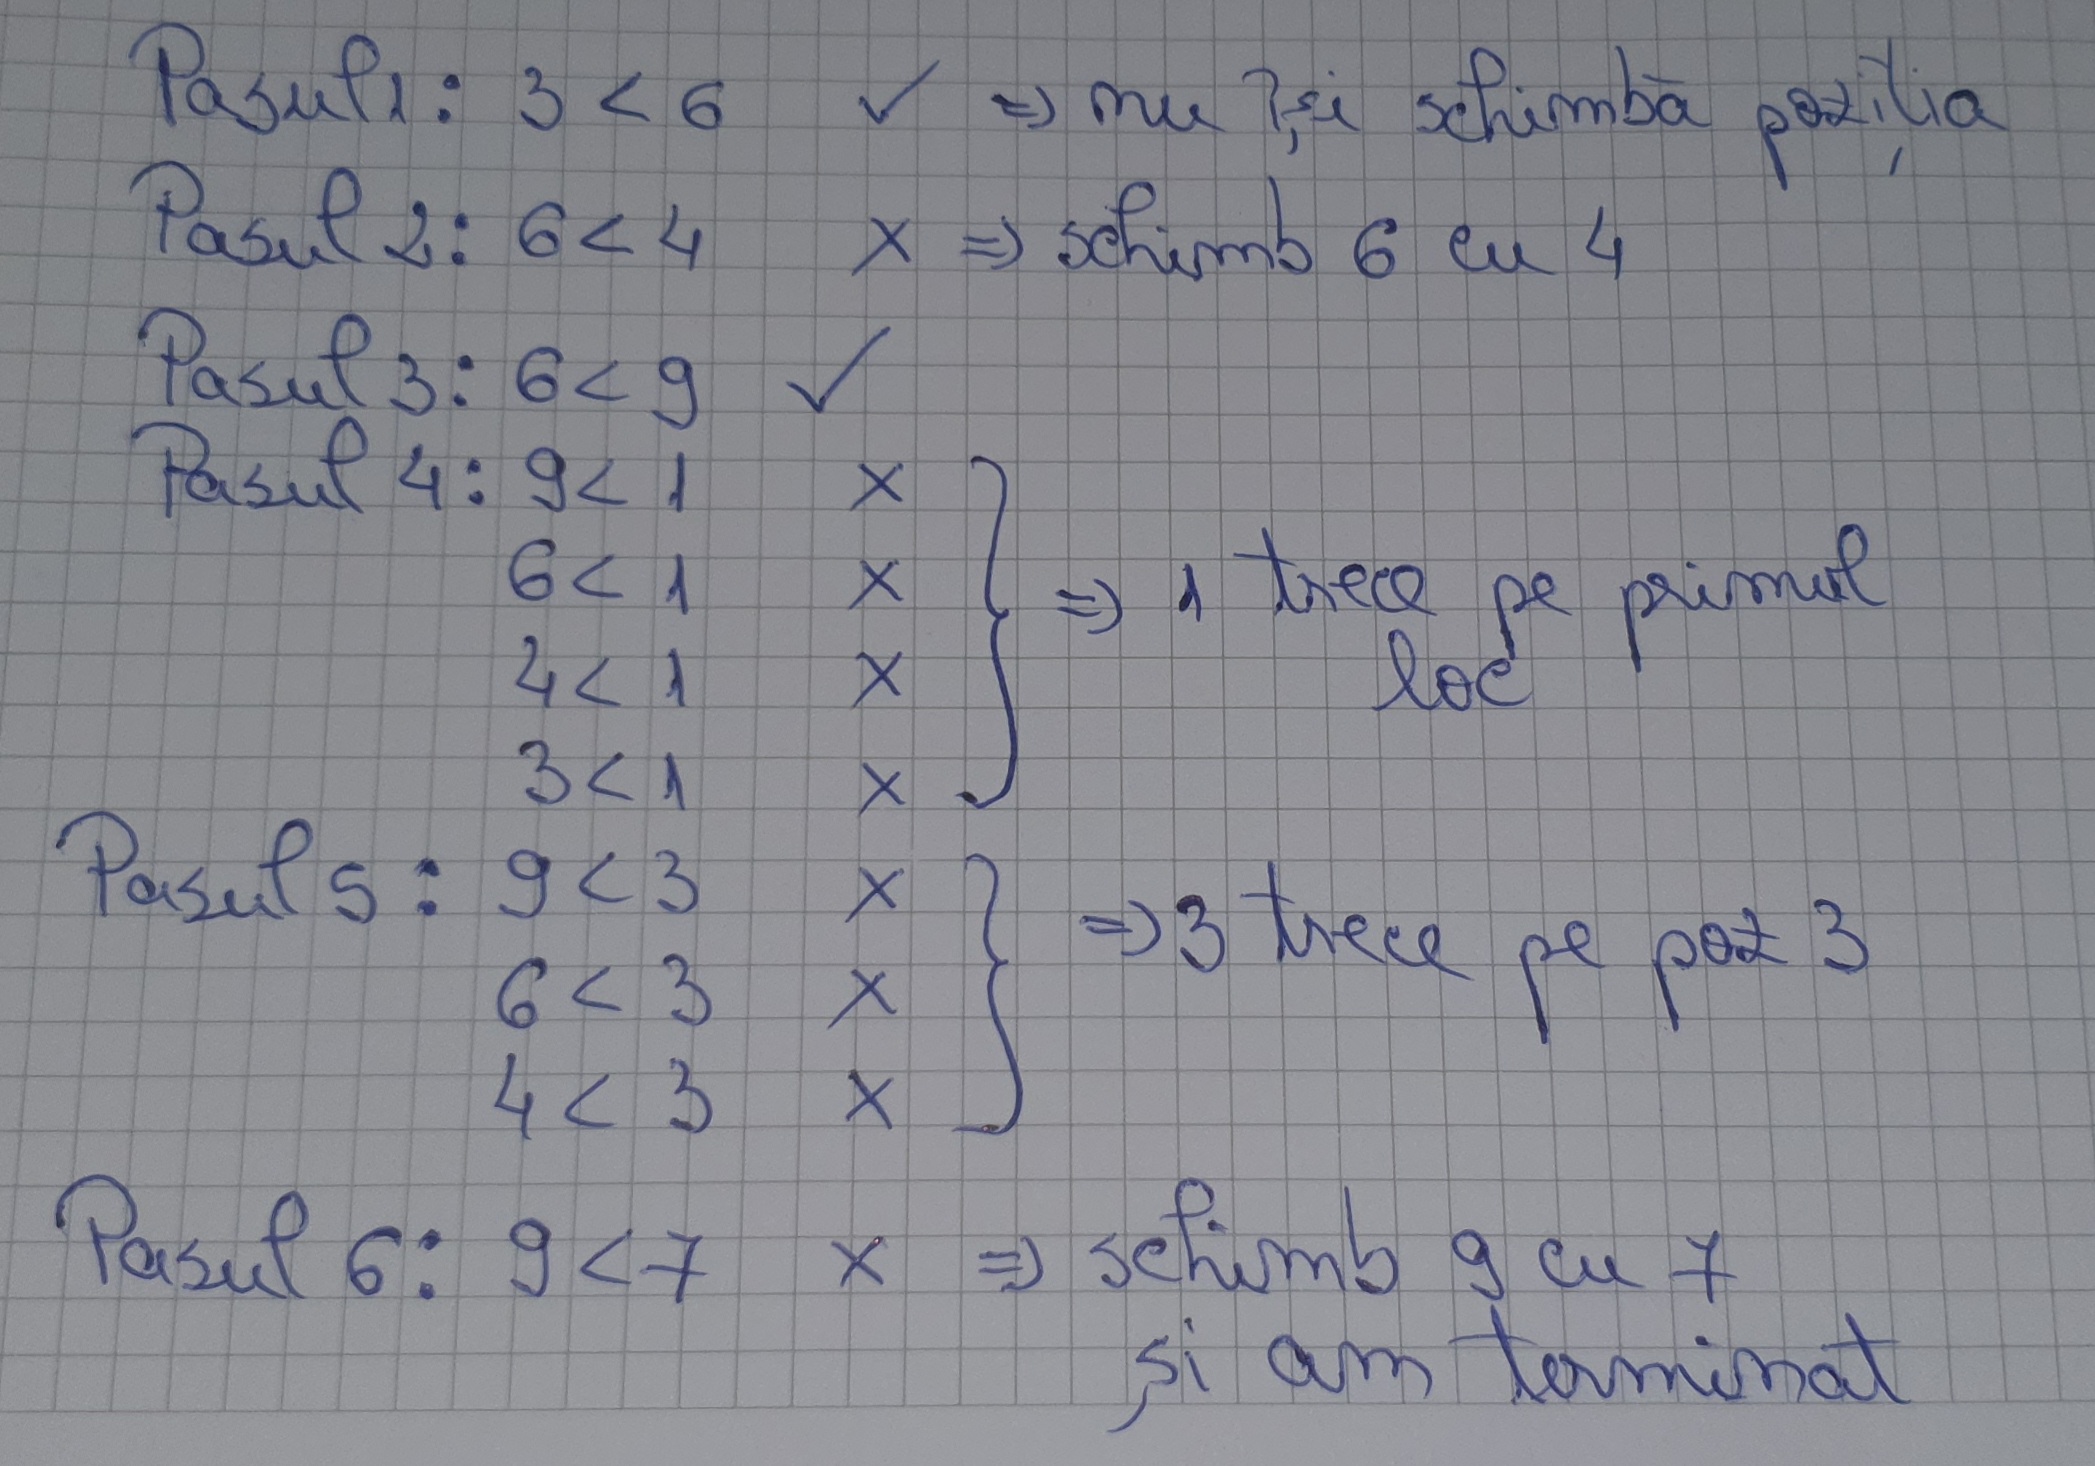 Pasul 1: 3 < 6 ✓ => nu își schimbă poziția
Pasul 2: 6 < 4 x => schimb 6 cu 4
Pasul 3: 6 < 9 ✓
Pasul 4: 9 < 1 x
6 < 1 x
=> 1 trece pe primul
4 < 1 x
loc
3 < 1 x
Pasul 5: 9 < 3 x
=> 3 trece pe poz 3
6 < 3 x
4 < 3 x
Pasul 6: 9 < 7 x => schimb 9 cu 7
și am terminat